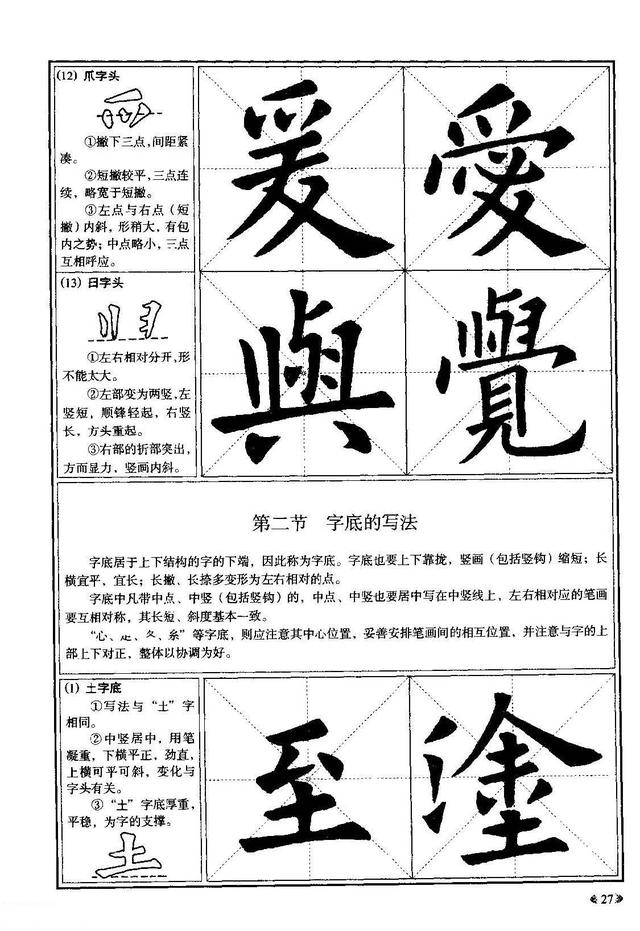 (12) 爪字头
①撇下三点，间距紧
凑。
②短撇较平，三点连
续，略宽于短撇。
③左点与右点（短
撇）内斜，形稍大，有包
内之势；中点略小，三点
互相呼应。
爰 愛
(13) 日字头
①左右相对分开，形
不能太大。
②左部变为两竖，左
竖短，顺锋轻起，右竖
长，方头重起。
③右部的折部突出，
方而显力，竖画内斜。
與 覺
第二节 字底的写法
字底居于上下结构的字的下端，因此称为字底。字底也要上下靠拢，竖画（包括竖钩）缩短；长
横宜平，宜长；长撇、长捺多变形为左右相对的点。
字底中凡带中点、中竖（包括竖钩）的，中点、中竖也要居中写在中竖线上，左右相对应的笔画
要互相对称，其长短、斜度基本一致。
“心、疋、夂、系”等字底，则应注意其中心位置，妥善安排笔画间的相互位置，并注意与字的上
部上下对正，整体以协调为好。
(1) 土字底
①写法与“土”字
相同。
②中竖居中，用笔
凝重，下横平正，劲直，
上横可平可斜，变化与
字头有关。
③“土”字底厚重，
平稳，为字的支撑。
土
至 塗
27